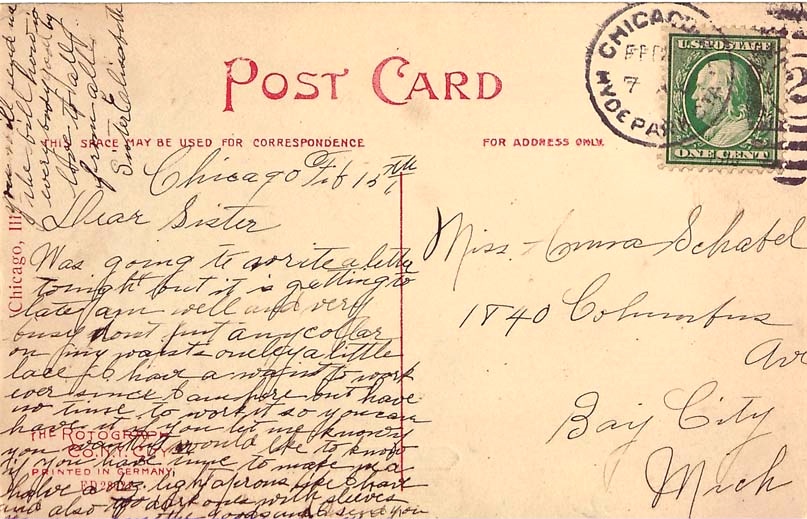 POST CARD
THIS SPACE MAY BE USED FOR CORRESPONDENCE
FOR ADDRESS ONLY.
CHICAGO
FEB
7
HYDE PARK
U.S. POSTAGE
ONE CENT
Chicago Feb 15th
Dear Sister
Was going to write a letter
tonight but it is getting to
late am well and very
busy dont put any collar
on my waist onely a little
lace I have a waist to work
ever since I am here but have
no time to work it so you can
have it if you let me know if
you want it would like to know
if you have time to make me a
halve a doz. light aprons like I have
and also two dark ones with sleeves
the goods and I send you
you will send me
the bill how is
everybody good by
love to all
from all
Sister Elisabeth
Miss Anna Schabel
1840 Columbus
Ave
Bay City
Mich
Chicago, Ill
THE ROTOGRAPH
CO. N.Y. CITY
PRINTED IN GERMANY